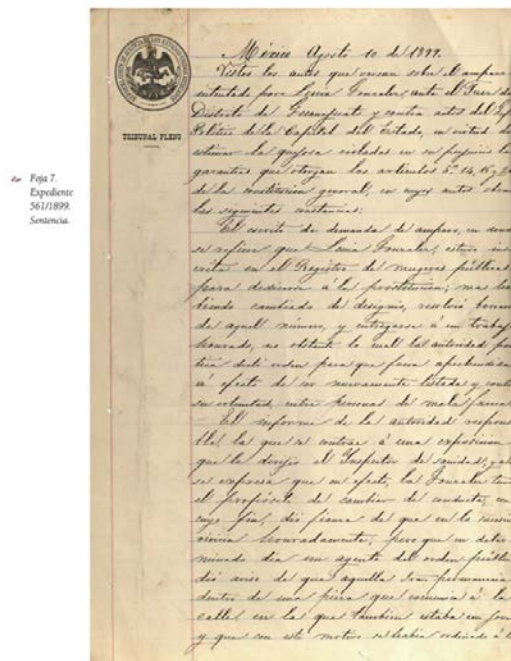 TRIBUNAL PLENO
Foja 7.
Expediente
561/1899.
Sentencia.
México Agosto 10 de 1899.
Vistos los autos que versan sobre el amparo
intentado por Lucia Gonzalez, ante el Juez de
Distrito de Guanajuato y contra actos del Jefe
Político de la Capital del Estado, en virtud de
estimar la quejosa violadas en su perjuicio las
garantías que otorgan los artículos 5º, 14, 16 y
de la constitucion general, en cuyos autos obran
las siguientes constancias:
El escrito de demanda de amparo, en donde
se refiere que Lucia Gonzalez, estuvo ins
crita en el Registro de mugeres públicas
para dedicarse á la prostitucion; mas ha
biendo cambiado de designio, resolvió borrarse
de aquel número, y entregarse á un trabajo
honrado, no obstante lo cual la autoridad polí
tica dictó orden para que fuera aprehendida
á efecto de ser nuevamente listada y contra
su voluntad, entre personas de mala fama
El informe de la autoridad responsa
ble, la que se contrae á una exposicion
que le dirigió el Inspector de sanidad, y
se expresa que en efecto, la Gonzalez tuvo
el propósito de cambiar de conducta, en
cuyo fin, dió fianza de que en lo sucesivo
viviria honradamente; pero que en deter
minado dia un agente del orden público
dió aviso de que aquella permanecia
dentro de una pieza que comunica á la
calle, en la que tambien estaba un
y que con este motivo se habia ordenado á